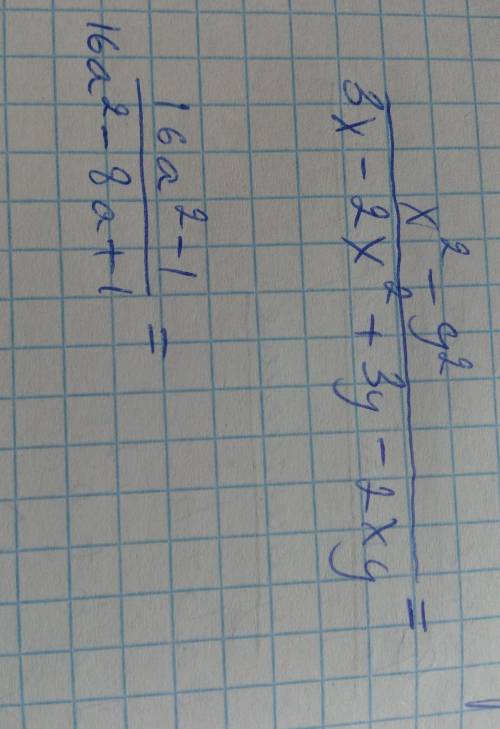 x² - y²
3x - 2x² + 3y - 2xy =
16a² - 1
16a² - 8a + 1 =